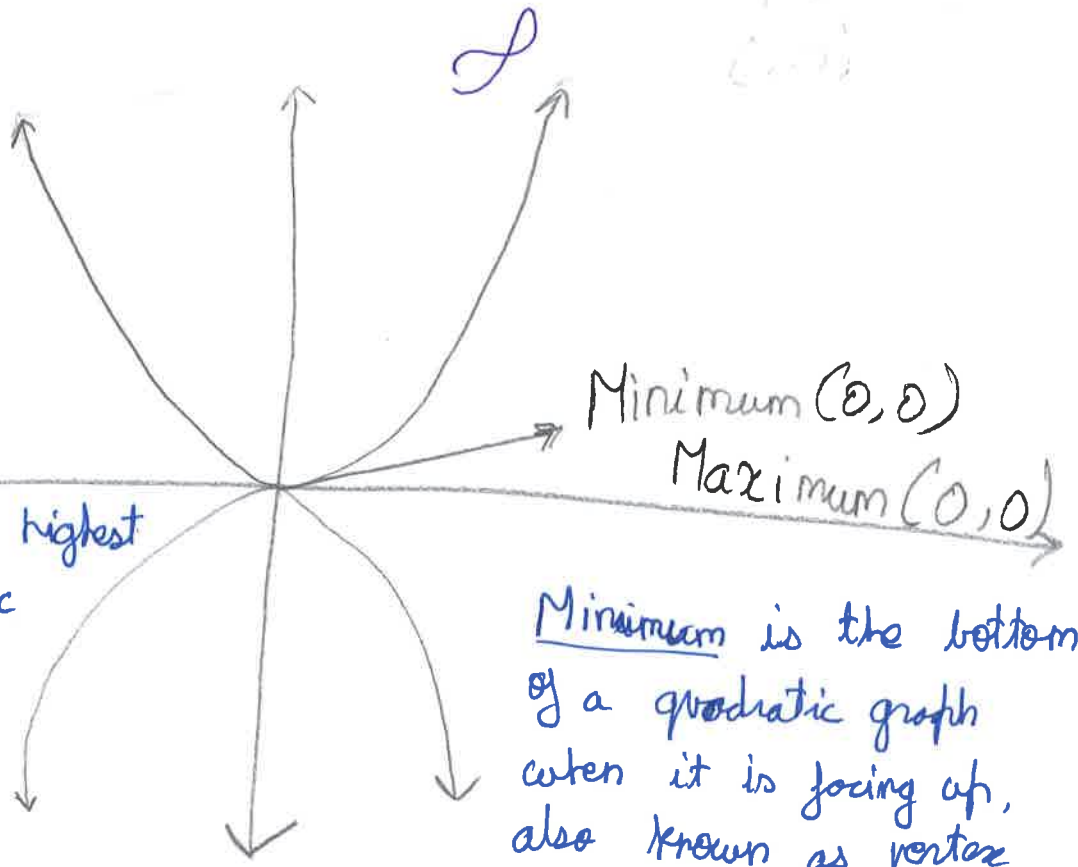 ∞
Minimum (0,0)
Maximum (0,0)
highest
c
Minimum is the bottom
of a quadratic graph
when it is facing up,
also known as vertex